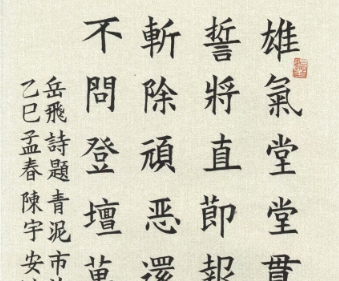 雄氣堂堂貫
誓將直節報
斬除頑恶還
不問登壇萬
岳飛詩題青泥市
乙巳孟春陳宇安